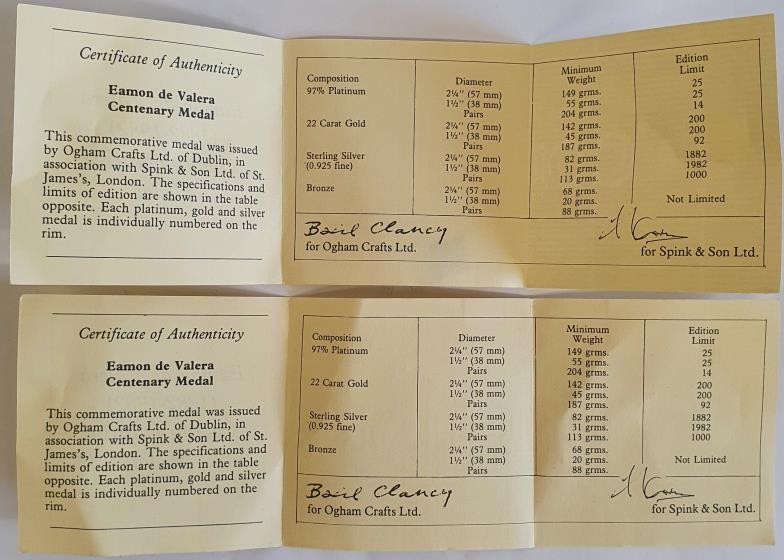 Certificate of Authenticity
Eamon de Valera
Centenary Medal
This commemorative medal was issued
by Ogham Crafts Ltd. of Dublin, in
association with Spink & Son Ltd. of St.
James's, London. The specifications and
limits of edition are shown in the table
opposite. Each platinum, gold and silver
medal is individually numbered on the
rim.
Composition Diameter Minimum Weight Edition Limit
97% Platinum 2¼" (57 mm) 149 grms. 25
1½" (38 mm) 55 grms. 25
Pairs 204 grms. 14
22 Carat Gold 2¼" (57 mm) 142 grms. 200
1½" (38 mm) 45 grms. 200
Pairs 187 grms. 92
Sterling Silver 2¼" (57 mm) 82 grms. 1882
(0.925 fine) 1½" (38 mm) 31 grms. 1982
Pairs 113 grms. 1000
Bronze 2¼" (57 mm) 68 grms.
1½" (38 mm) 20 grms. Not Limited
Pairs 88 grms.
Basil Clancy
for Ogham Crafts Ltd. for Spink & Son Ltd.
Certificate of Authenticity
Eamon de Valera
Centenary Medal
This commemorative medal was issued
by Ogham Crafts Ltd. of Dublin, in
association with Spink & Son Ltd. of St.
James's, London. The specifications and
limits of edition are shown in the table
opposite. Each platinum, gold and silver
medal is individually numbered on the
rim.
Composition Diameter Minimum Weight Edition Limit
97% Platinum 2¼" (57 mm) 149 grms. 25
1½" (38 mm) 55 grms. 25
Pairs 204 grms. 14
22 Carat Gold 2¼" (57 mm) 142 grms. 200
1½" (38 mm) 45 grms. 200
Pairs 187 grms. 92
Sterling Silver 2¼" (57 mm) 82 grms. 1882
(0.925 fine) 1½" (38 mm) 31 grms. 1982
Pairs 113 grms. 1000
Bronze 2¼" (57 mm) 68 grms.
1½" (38 mm) 20 grms. Not Limited
Pairs 88 grms.
Basil Clancy
for Ogham Crafts Ltd. for Spink & Son Ltd.